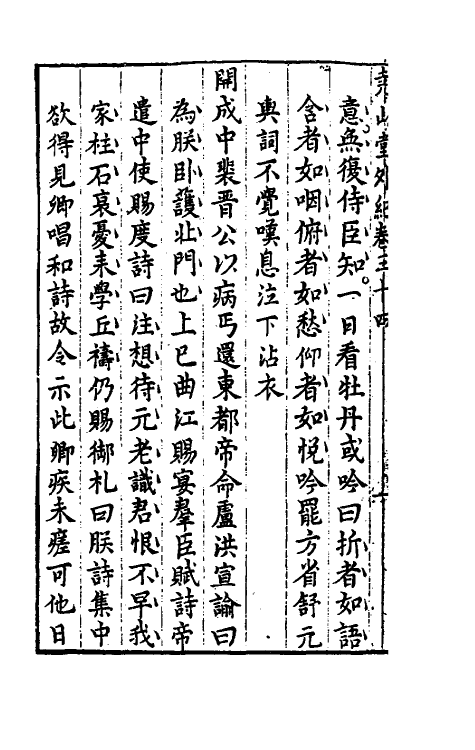 堯山堂外紀卷三十四
意無復侍臣知一日看牡丹或吟曰折者如語
含者如咽俯者如愁仰者如悅吟罷方省舒元
輿詞不覺嘆息泣下沾衣
開成中裴晉公以病丐還東都帝命盧洪宣諭曰
為朕卧護北門也上巳曲江賜宴羣臣賦詩帝
遣中使賜度詩曰注想待元老識君恨不早我
家柱石衰憂来學丘禱仍賜御札曰朕詩集中
欲得見卿唱和詩故令示此卿疾未瘥可他日